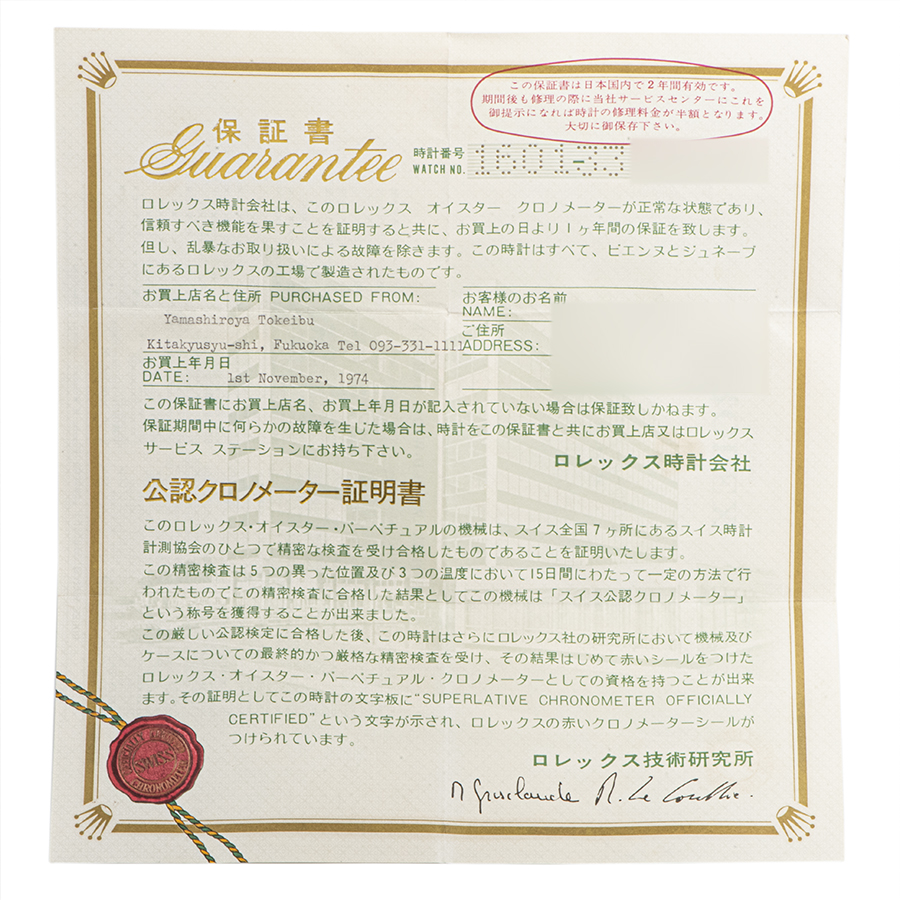 この保証書は日本国内で2年間有効です。
期間後も修理の際に当社サービスセンターにこれを
御提示になれば時計の修理料金が半額となります。
大切に御保存下さい。
保証書
Guarantee
時計番号
WATCH NO.
1601-33
ロレックス時計会社は、このロレックス オイスター クロノメーターが正常な状態であり、
信頼すべき機能を果すことを証明すると共に、お買上の日より1ヶ年間の保証を致します。
但し、乱暴なお取り扱いによる故障を除きます。この時計はすべて、ビエンヌとジュネーブ
にあるロレックスの工場で製造されたものです。
お買上店名と住所 PURCHASED FROM:
Yamashiroya Tokeibu
Kitakyusyu-shi, Fukuoka Tel 093-331-1111
お買上年月日
DATE: 1st November, 1974
お客様のお名前
NAME:
ご住所
ADDRESS:
この保証書にお買上店名、お買上年月日が記入されていない場合は保証致しかねます。
保証期間中に何らかの故障を生じた場合は、時計をこの保証書と共にお買上店又はロレックス
サービス ステーションにお持ち下さい。
ロレックス時計会社
公認クロノメーター証明書
このロレックス・オイスター・パーペチュアルの機械は、スイス全国7ヶ所にあるスイス時計
計測協会のひとつで精密な検査を受け合格したものであることを証明いたします。
この精密検査は5つの異った位置及び3つの温度において15日間にわたって一定の方法で行
われたものでこの精密検査に合格した結果としてこの機械は「スイス公認クロノメーター」
という称号を獲得することが出来ました。
この厳しい公認検定に合格した後、この時計はさらにロレックス社の研究所において機械及び
ケースについての最終的かつ厳格な精密検査を受け、その結果はじめて赤いシールをつけた
ロレックス・オイスター・パーペチュアル・クロノメーターとしての資格を持つことが出来
ます。その証明としてこの時計の文字板に"SUPERLATIVE CHRONOMETER OFFICIALLY
CERTIFIED"という文字が示され、ロレックスの赤いクロノメーターシールが
つけられています。
ロレックス技術研究所